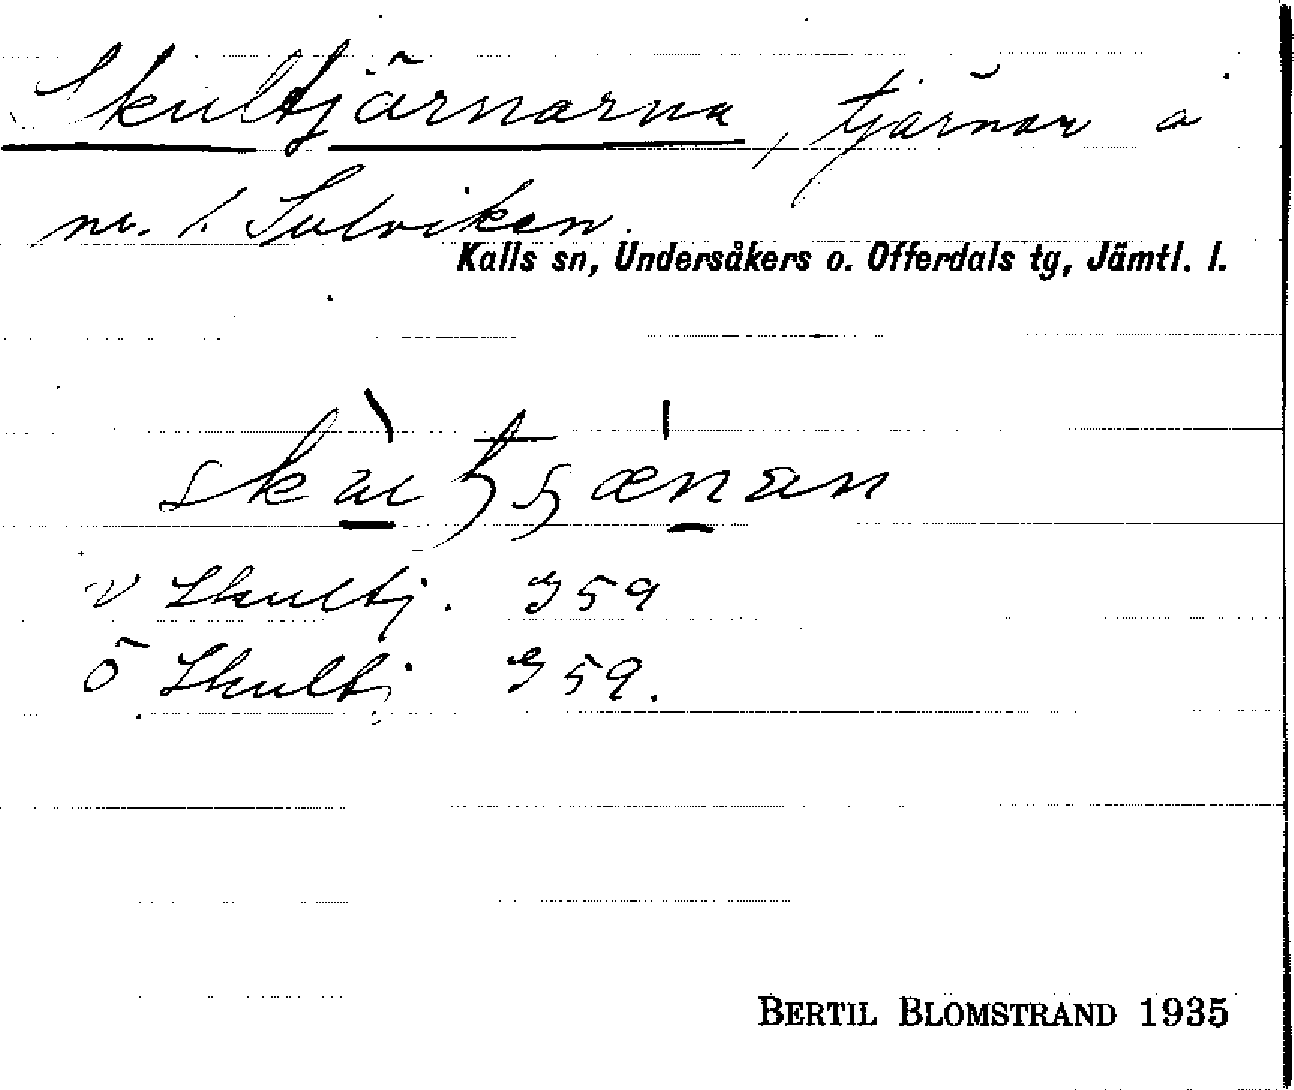 Skultjärnarna, tjärnar å
nv. l. Sulviken.
Kalls sn, Undersåkers o. Offerdals tg, Jämtl. l.
V Skultj. 959
Ö Skultj 959.
BERTIL BLOMSTRAND 1935